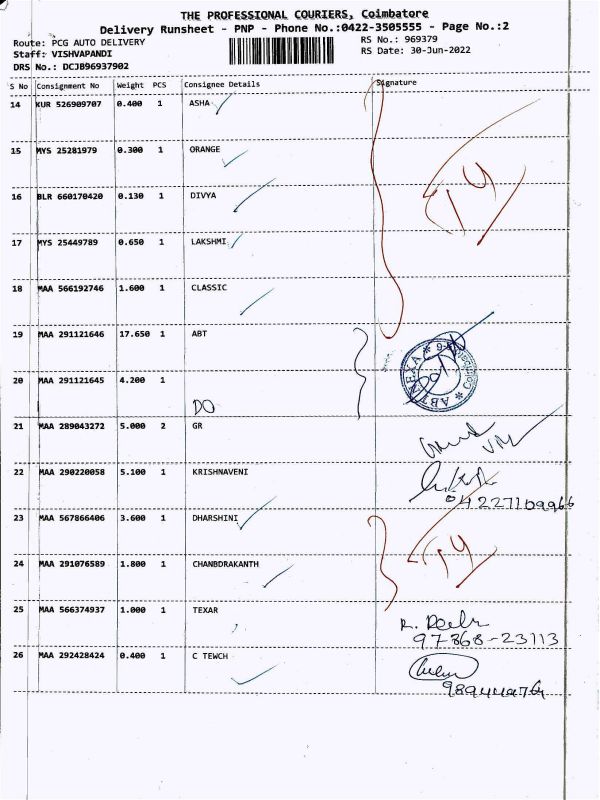 THE PROFESSIONAL COURIERS, Coimbatore
Delivery Runsheet - PNP - Phone No.:0422-3505555 - Page No.:2
Route: PCG AUTO DELIVERY
RS No.: 969379
Staff: VISHVAPANDI
RS Date: 30-Jun-2022
DRS No.: DCJB96937902
S No Consignment No Weight PCS Consignee Details Signature
14 KUR 526909707 0.400 1 ASHA
15 MYS 25281979 0.300 1 ORANGE
16 BLR 660170420 0.130 1 DIVYA
17 MYS 25449789 0.650 1 LAKSHMI
18 MAA 566192746 1.600 1 CLASSIC
19 MAA 291121646 17.650 1 ABT
20 MAA 291121645 4.200 1
DO
ABT NEXA
21 MAA 289043272 5.000 2 GR
22 MAA 290220058 5.100 1 KRISHNAVENI
04227109966
23 MAA 567866406 3.600 1 DHARSHINI
24 MAA 291076589 1.800 1 CHANBDRAKANTH
25 MAA 566374937 1.000 1 TEXAR
97868-23113
26 MAA 292428424 0.400 1 C TEWCH